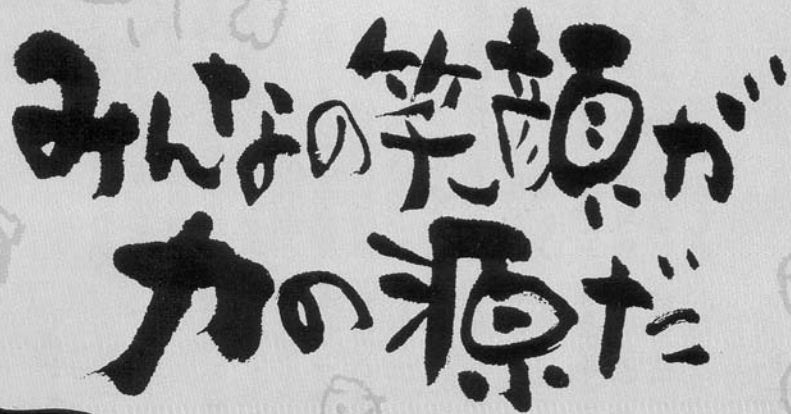 みんなの笑顔が
力の源だ